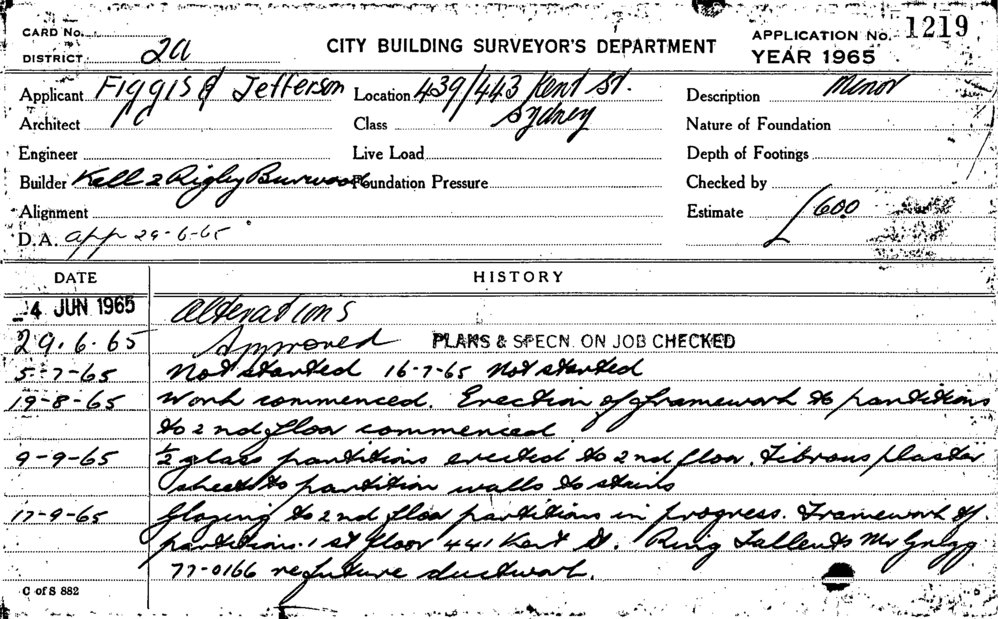 CARD No.
DISTRICT 2a
CITY BUILDING SURVEYOR'S DEPARTMENT
APPLICATION No. 1219
YEAR 1965
Applicant Figgis & Jefferson
Location 439/443 Kent St.
Sydney
Description Minor
Architect
Class
Nature of Foundation
Engineer
Live Load
Depth of Footings
Builder Kell & Rigby Burwood
Foundation Pressure
Checked by
Alignment
Estimate £600
D.A. app 29-6-65
DATE
HISTORY
4 JUN 1965 Alterations
29.6.65 Approved PLANS & SPECN. ON JOB CHECKED
5-7-65 Not started 16-7-65 Not started
19-8-65 Work commenced. Erection of framework to partitions
to 2nd floor commenced
9-9-65 ½ glass partitions erected to 2nd floor. Fibrous plaster
sheets to partition walls to stairs
17-9-65 Glazing to 2nd floor partitions in progress. Framework of
partitions 1st floor 441 Kent St. Ring Tallents Mr
77-0166 re future ductwork.
C of S 882